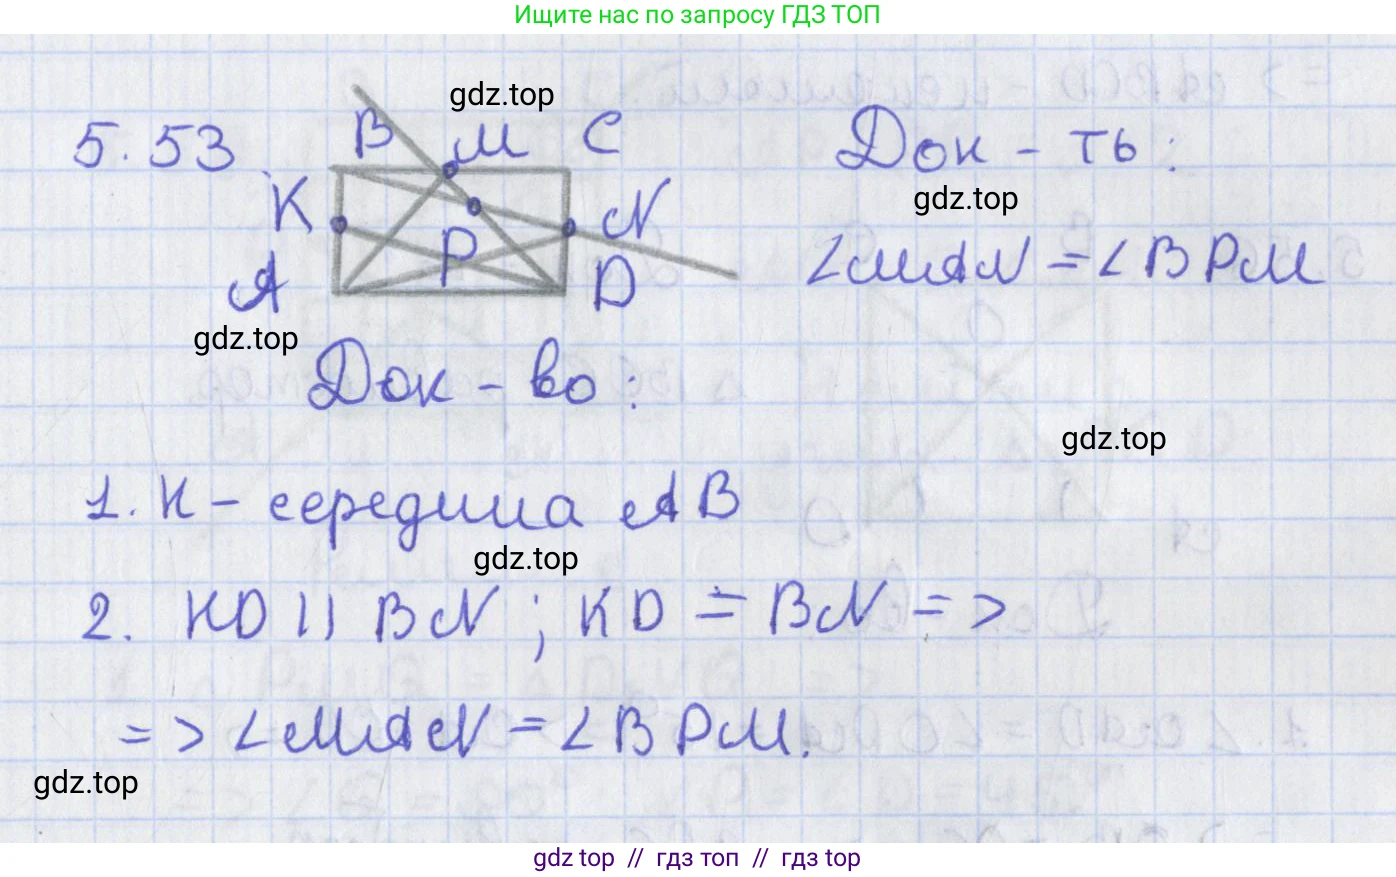 Ищите нас по запросу ГДЗ ТОП
gdz.top
5.53
B M C
K N
P
A D
Док-ть:
gdz.top
∠MAN = ∠BPM
gdz.top
Док-во:
gdz.top
1. K - середина AB
gdz.top
2. KD || BN ; KD = BN =>
=> ∠MAN = ∠BPM.
gdz.top
gdz top // гдз топ // гдз top